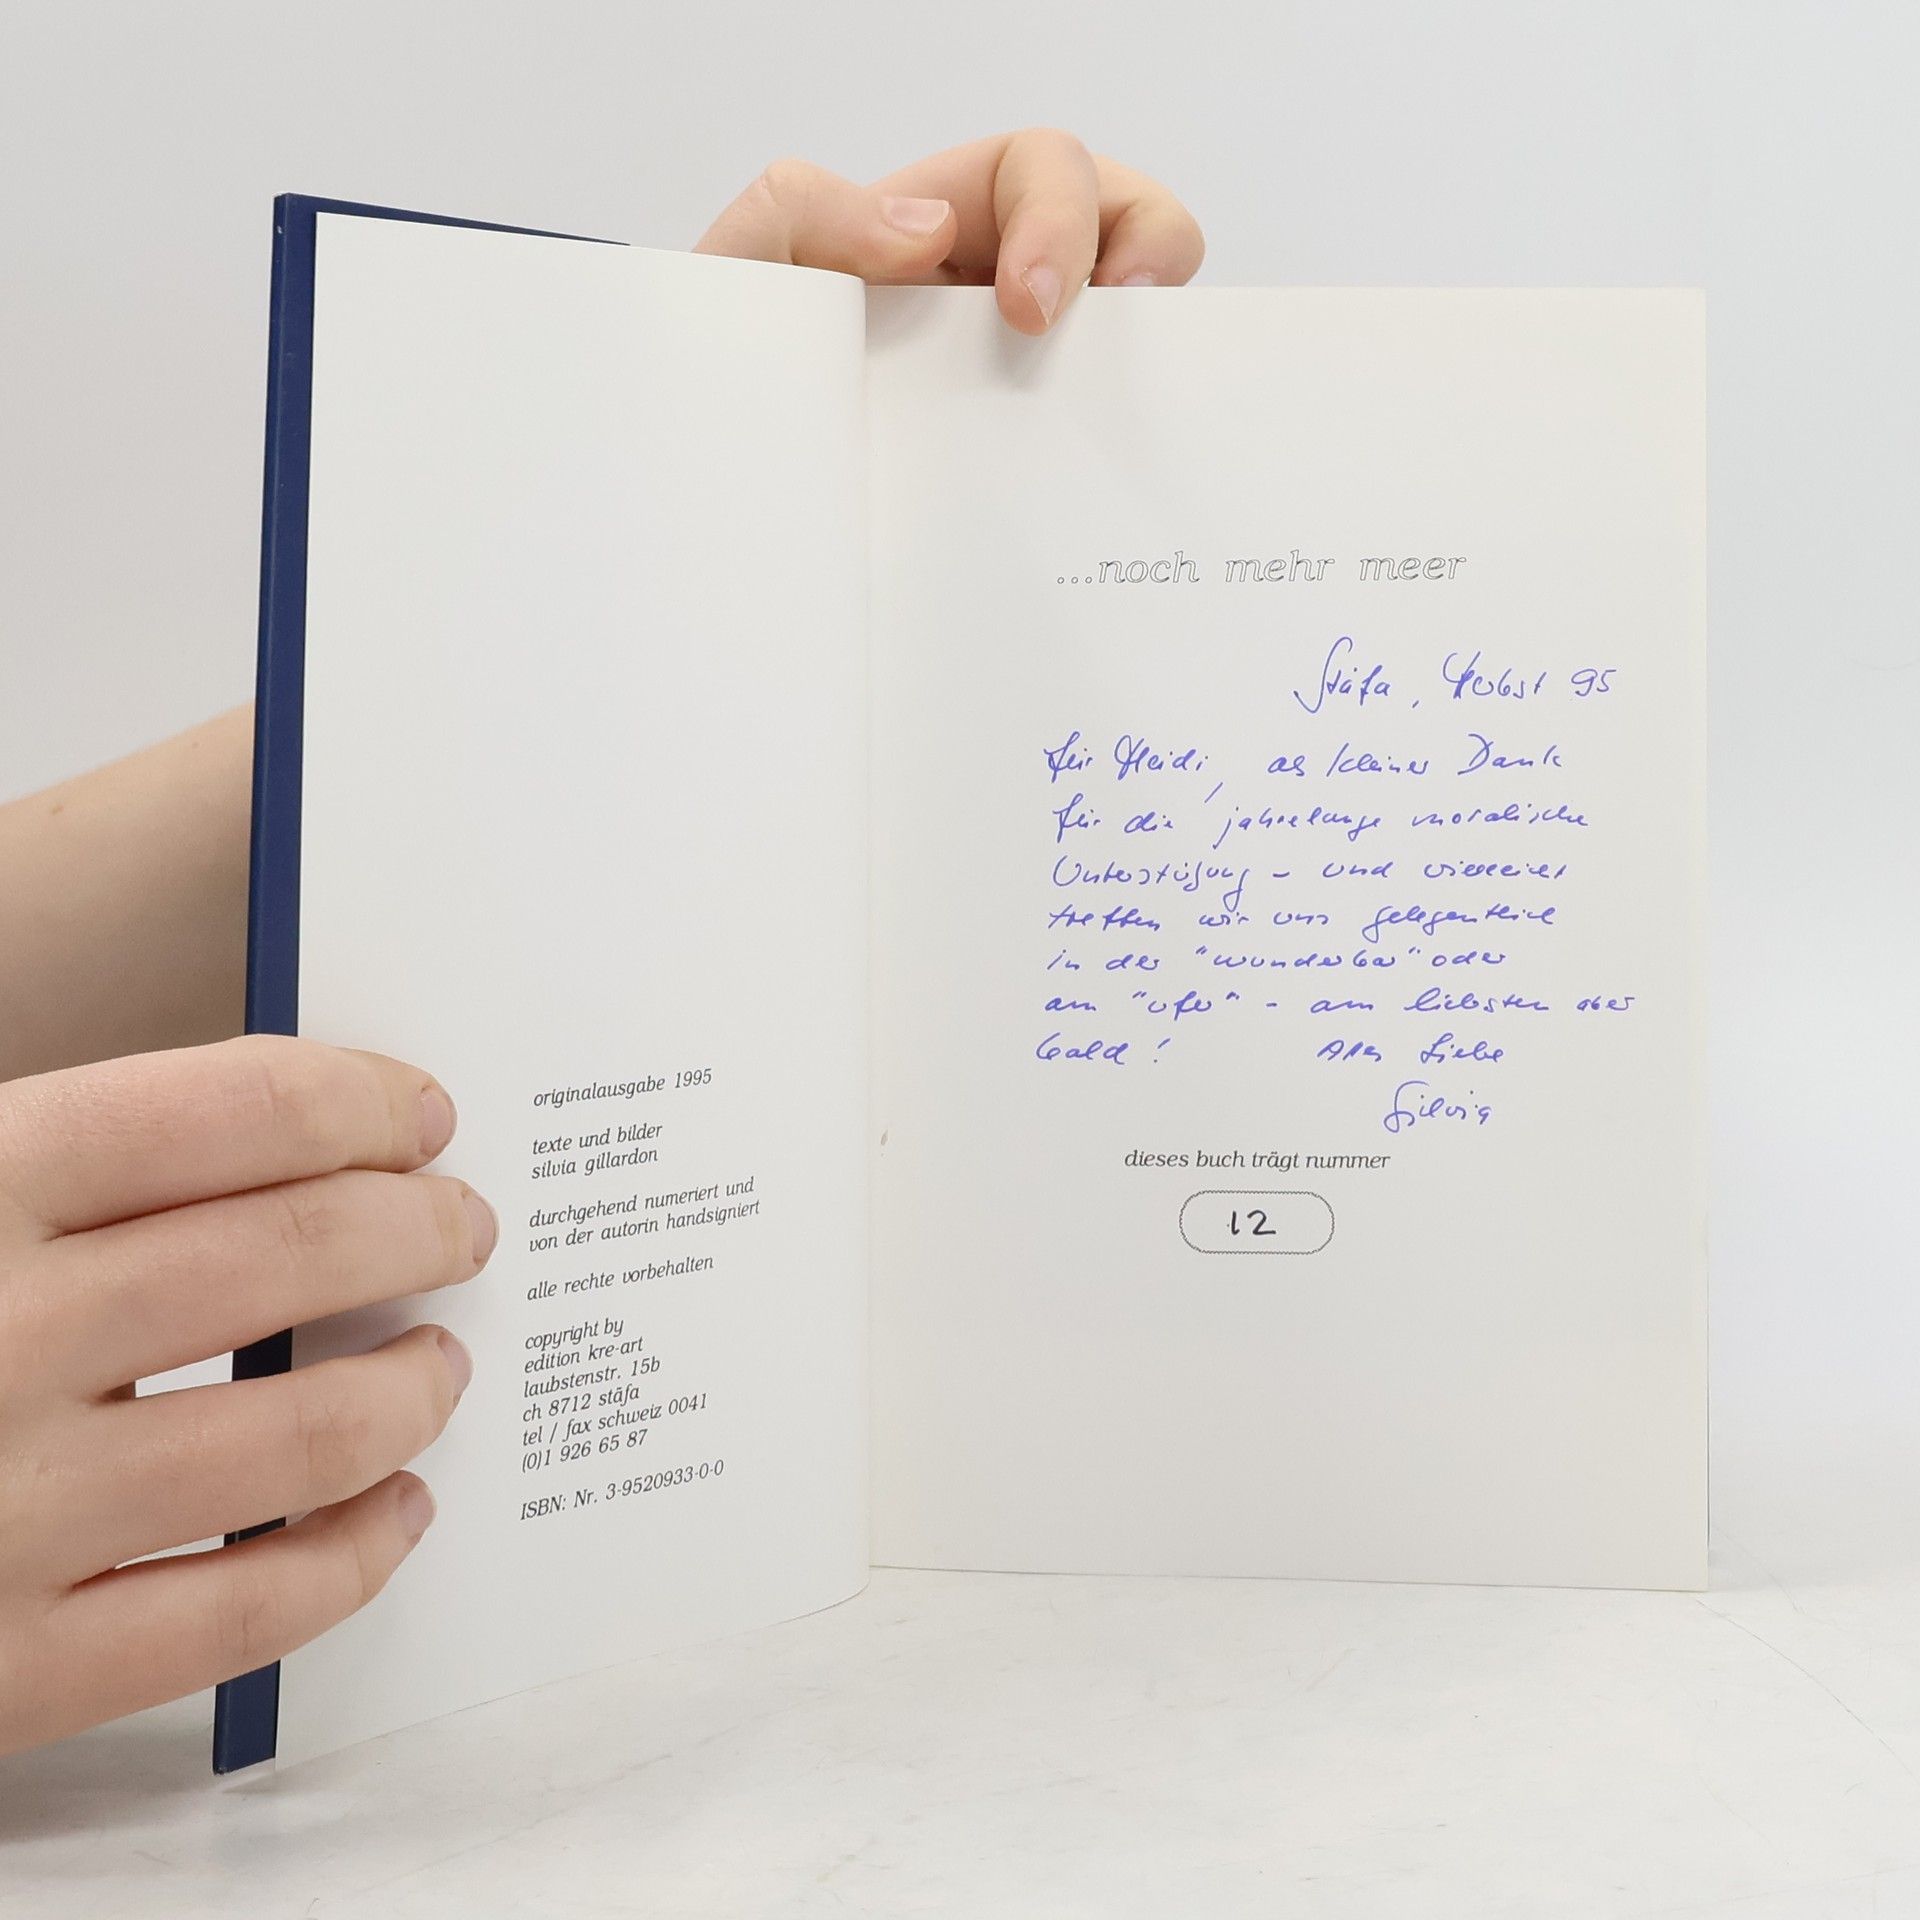 originalausgabe 1995
texte und bilder
silvia gillardon
durchgehend numeriert und
von der autorin handsigniert
alle rechte vorbehalten
copyright by
edition kre-art
laubstenstr. 15b
ch 8712 stäfa
tel / fax schweiz 0041
(0)1 926 65 87
ISBN: Nr. 3-9520933-0-0
...noch mehr meer
Stäfa, Herbst 95
für Heidi, als kleiner Dank
für die jahrelange moralische
Unterstützung - und vielleicht
treffen wir uns gelegentlich
in der "wunderbar" oder
am "ufer" - am liebsten aber
bald! Alles Liebe
Silvia
dieses buch trägt nummer
12